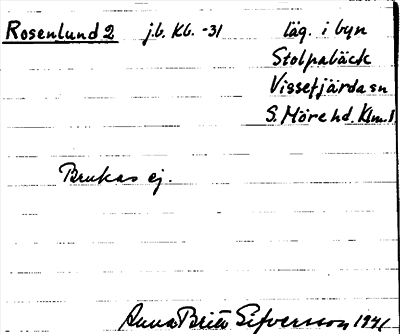 Rosenlund 2 j.b. Kb. -31 läg. i byn
Stolpabäck
Vissefjärda sn
S. Möre hd. Klm. l
Brukas ej.
Anna Britt Sifversson 1941